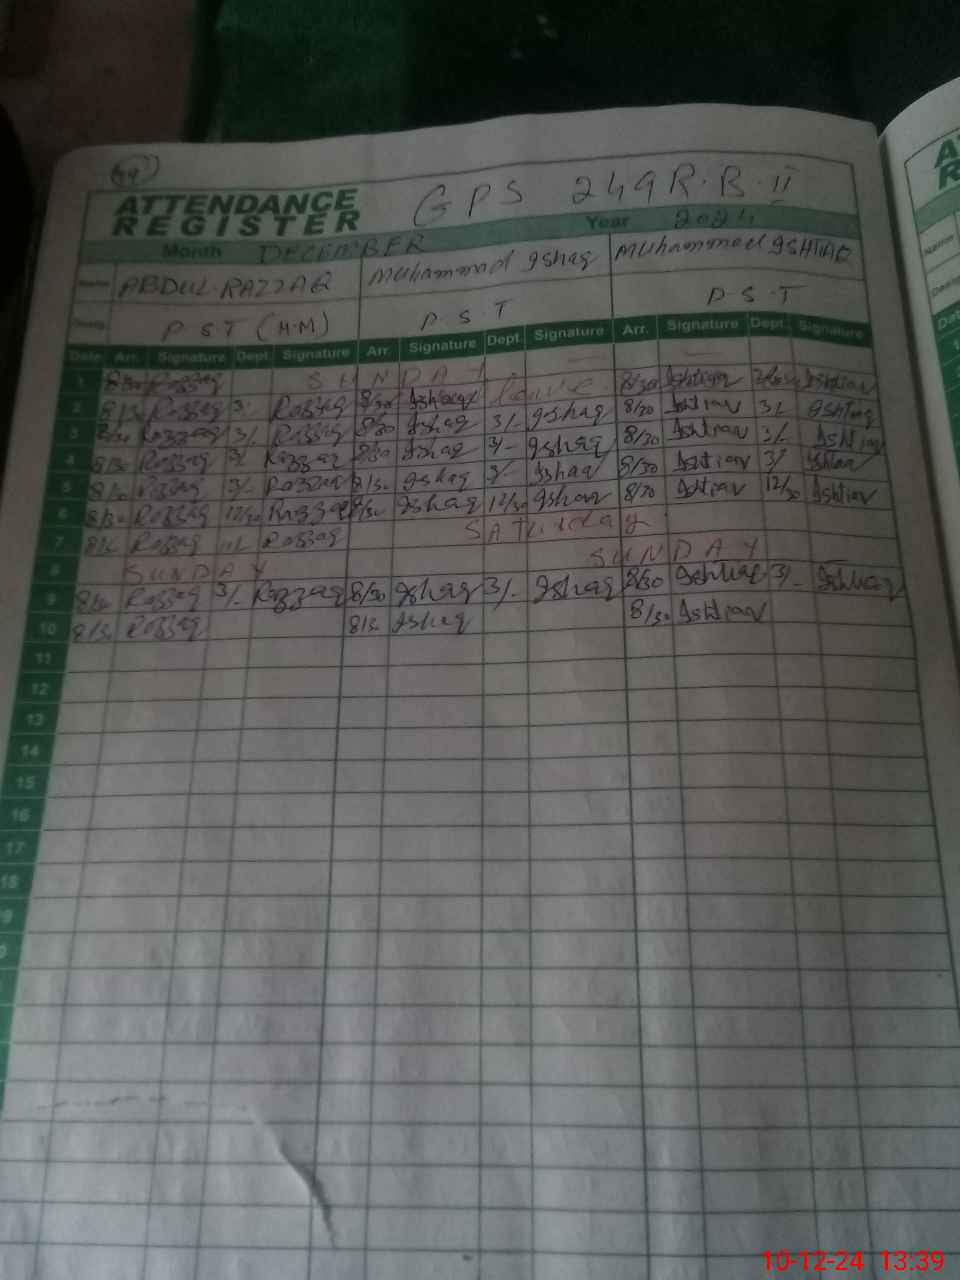 GPS 249 R.B.II
ATTENDANCE
REGISTER
Year 2024
Month DECEMBER
Name ABDUL.RAZZAQ Muhammad Ishaq Muhammad ISHTIAQ
P.S.T (H.M) P.S.T P.S.T
Date Arr. Signature Dept. Signature Arr. Signature Dept. Signature Arr. Signature Dept. Signature
1 SUNDAY
2 8/30 Razzaq 3/- Razzaq 8/30 Ishaq 8/30 Ishtiaq Ishtiaq
3 8/30 Razzaq 3/- Razzaq 8/30 Ishaq 3/- Ishaq 8/30 Ishtiaq 3/- Ishtiaq
4 8/30 Razzaq 3/- Razzaq 8/30 Ishaq 3/- Ishaq 8/30 Ishtiaq 3/- Ishtiaq
5 8/30 Razzaq 3/- Razzaq 8/30 Ishaq 3/- Ishaq 8/30 Ishtiaq 3/- Ishtiaq
6 8/30 Razzaq 12/30 Razzaq 8/30 Ishaq 12/30 Ishaq 8/30 Ishtiaq 12/30 Ishtiaq
7 Razzaq Razzaq SATURDAY
8 SUNDAY SUNDAY
9 8/30 Razzaq 3/- Razzaq 8/30 Ishaq 3/- Ishaq 8/30 Ishtiaq 3/- Ishtiaq
10 8/30 Razzaq 8/30 Ishaq 8/30 Ishtiaq
11
12
13
14
15
16
17
18
10-12-24 13:39